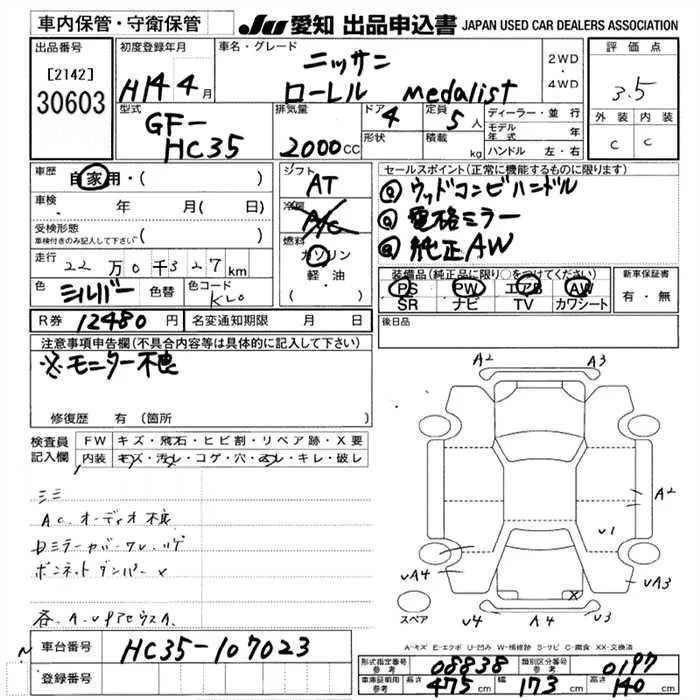 車内保管・守衛保管
JU 愛知 出品申込書 JAPAN USED CAR DEALERS ASSOCIATION
出品番号
[2142]
30603
初度登録年月
H14 4月
車名・グレード
ニッサン
ローレル medalist
2WD
・
4WD
評価点
3.5
外装 内装
C C
型式
GF-
HC35
排気量
2000CC
ドア
4
定員
5人
形状
積載
kg
ディーラー・並行
モデル年式 年
ハンドル 左・右
車歴
自家用・( )
車検 年 月( 日)
受検形態
車検付きのみ記入して下さい ( )
走行
22万0千327km
色
シルバー
色替
色コード
KL0
シフト
AT
冷房
A/C
燃料
ガソリン
軽油
セールスポイント(正常に機能するものに限ります)
ウッドコンビハンドル
電格ミラー
純正AW
装備品(純正品に限り○をつけてください)
PS PW エアB AW
SR ナビ TV カワシート
新車保証書
有・無
R券 12480円
名変通知期限 月 日
後日品
注意事項申告欄(不具合内容等は具体的に記入して下さい)
※モニター不良
修復歴 有(箇所 )
検査員
記入欄
FW キズ・飛石・ヒビ割・リペア跡・X要
内装 キズ・汚レ・コゲ・穴・凹レ・キレ・破レ
AC、オーディオ不良
ボンネットダンパー×
A2 A3
A2
v1
vA4 vA3
v4 A4 v3
X
スペア
A-キズ E-エクボ U-凹み W-補修跡 S-サビ C-腐食 XX-交換済
車台番号 HC35-107023
登録番号
形式指定番号
参考
08838
類別区分番号
参考
0197
車庫証明用
参考
長さ
475cm
幅
173cm
高さ
140cm